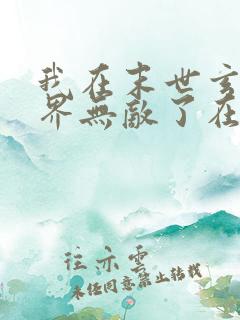 我在末世
界無敵了在
往亦雲
未经同意禁止转载